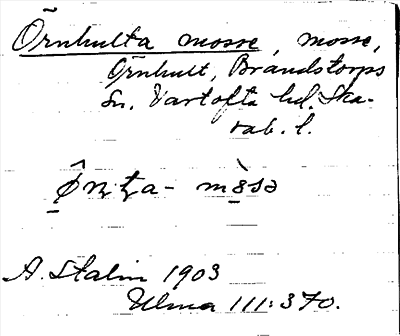 Örnhulta mosse, mosse,
Örnhult, Brandstorps
sn. Vartofta hd. Ska-
rab. l.
mɵsə
A. Stalin 1903
Ulma 111:370.